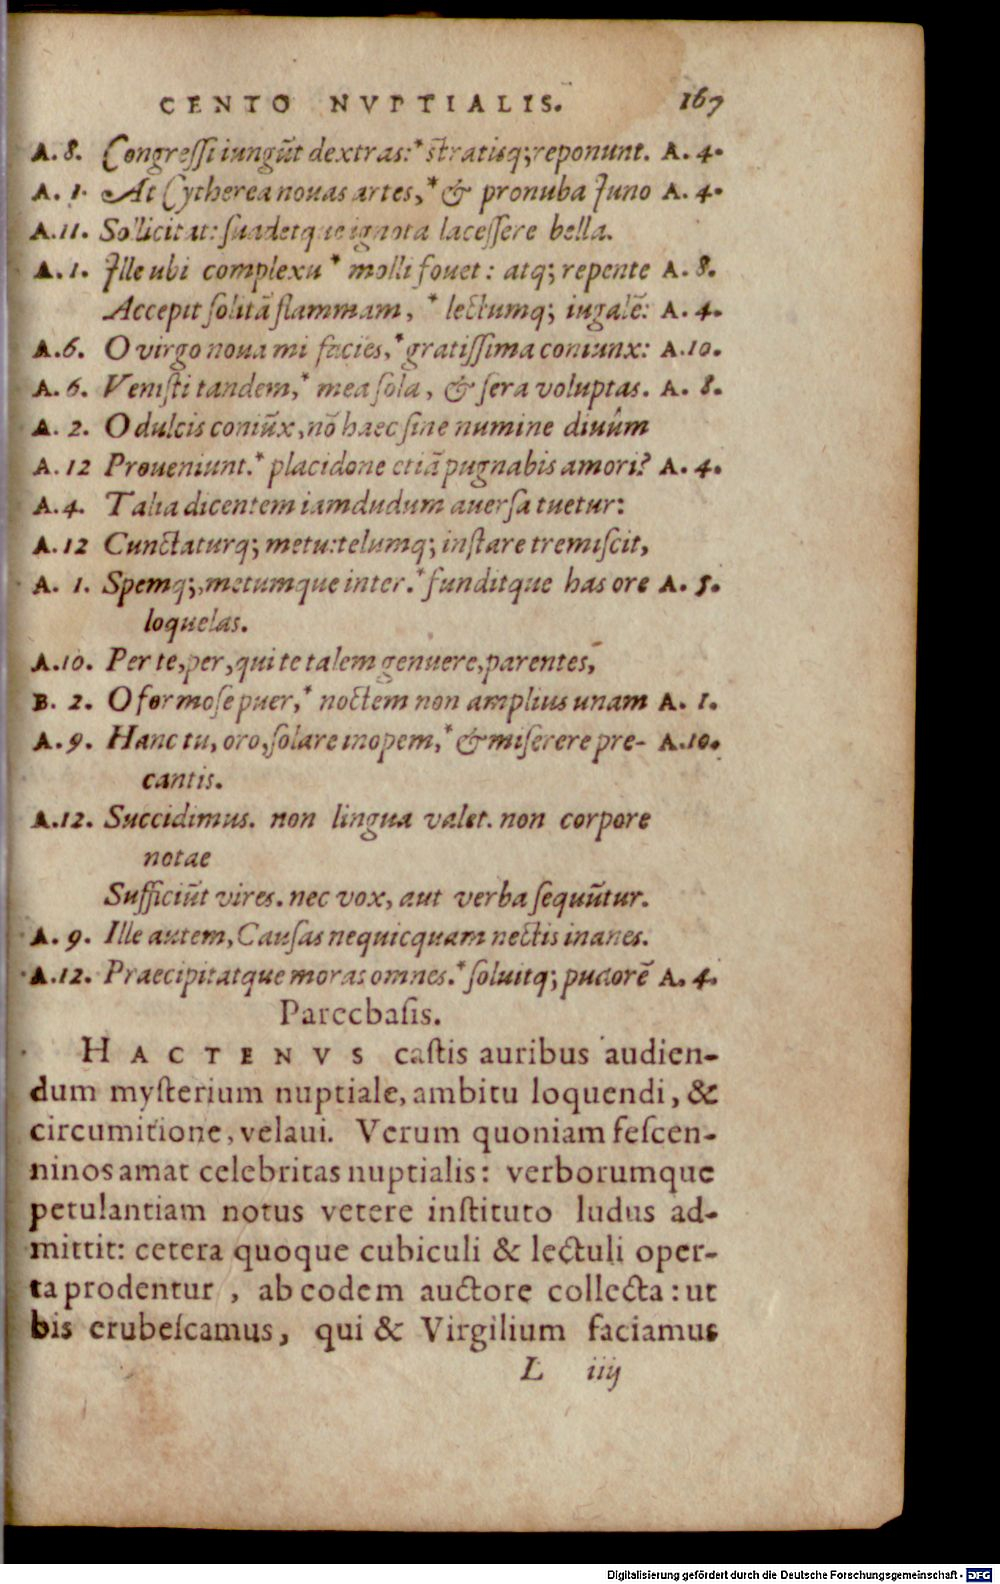 CENTO NVPTIALIS. 167
A. 8. Congreſſi iungūt dextras:* ſtratisq; reponunt. A. 4.
A. 1. At Cytherea nouas artes,* & pronuba Iuno A. 4.
A.11. Sollicitat: ſuadetque ignota laceſſere bella.
A. 1. Ille ubi complexu * molli fouet: atq; repente A. 8.
Accepit ſolitā flammam, * lectumq; iugalē: A. 4.
A.6. O virgo noua mi facies,* gratiſſima coniunx: A.10.
A. 6. Veniſti tandem,* mea ſola, & ſera voluptas. A. 8.
A. 2. O dulcis coniūx, nō haec ſine numine diuûm
A. 12 Proueniunt.* placidone etiā pugnabis amori? A. 4.
A. 4. Talia dicentem iamdudum auerſa tuetur:
A. 12 Cunctaturq; metu: telumq; inſtare tremiſcit,
A. 1. Spemq;, metumque inter.* funditque has ore A. 5.
loquelas.
A.10. Per te, per, qui te talem genuere, parentes,
B. 2. O formoſe puer,* noctem non amplius unam A. 1.
A. 9. Hanc tu, oro, ſolare inopem,* & miſerere pre- A.10.
cantis.
A.12. Succidimus. non lingua valet. non corpore
notae
Sufficiūt vires. nec vox, aut verba ſequūtur.
A. 9. Ille autem, Cauſas nequicquam nectis inanes.
A.12. Praecipitatque moras omnes.* ſoluitq; pudorē A. 4.
Parecbaſis.
HACTENVS caſtis auribus audien-
dum myſterium nuptiale, ambitu loquendi, &
circumitione, velaui. Verum quoniam feſcen-
ninos amat celebritas nuptialis: verborumque
petulantiam notus vetere inſtituto ludus ad-
mittit: cetera quoque cubiculi & lectuli oper-
ta prodentur, ab eodem auctore collecta: ut
bis erubeſcamus, qui & Virgilium faciamus
L iiij
Digitalisierung gefördert durch die Deutsche Forschungsgemeinschaft - DFG